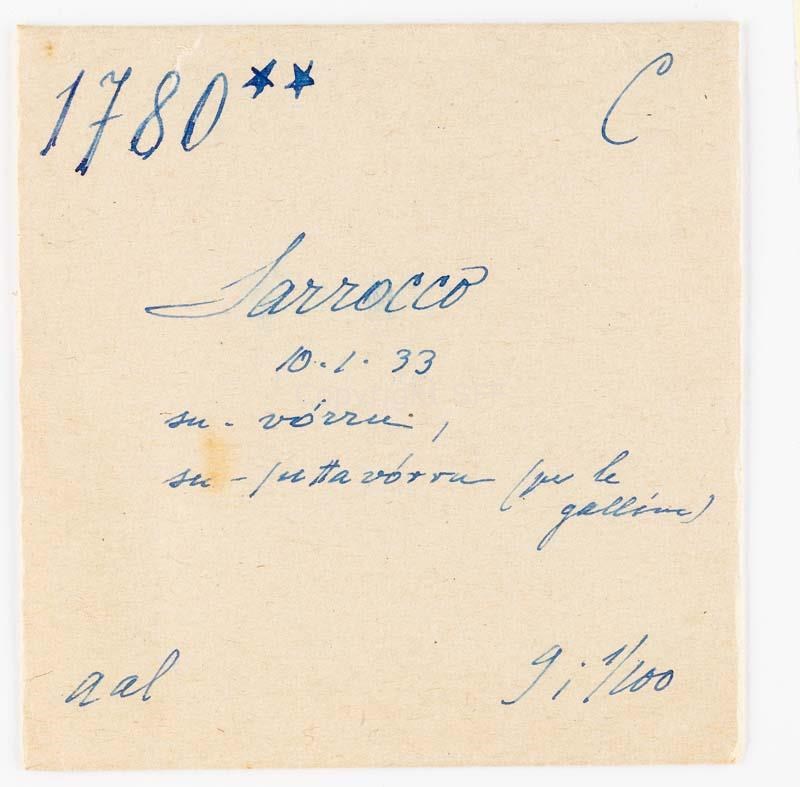 1780** C
Sarrocco
10.1.33
su - vórru,
su - suttavórru (per le
galline)
aal 9; 1/100